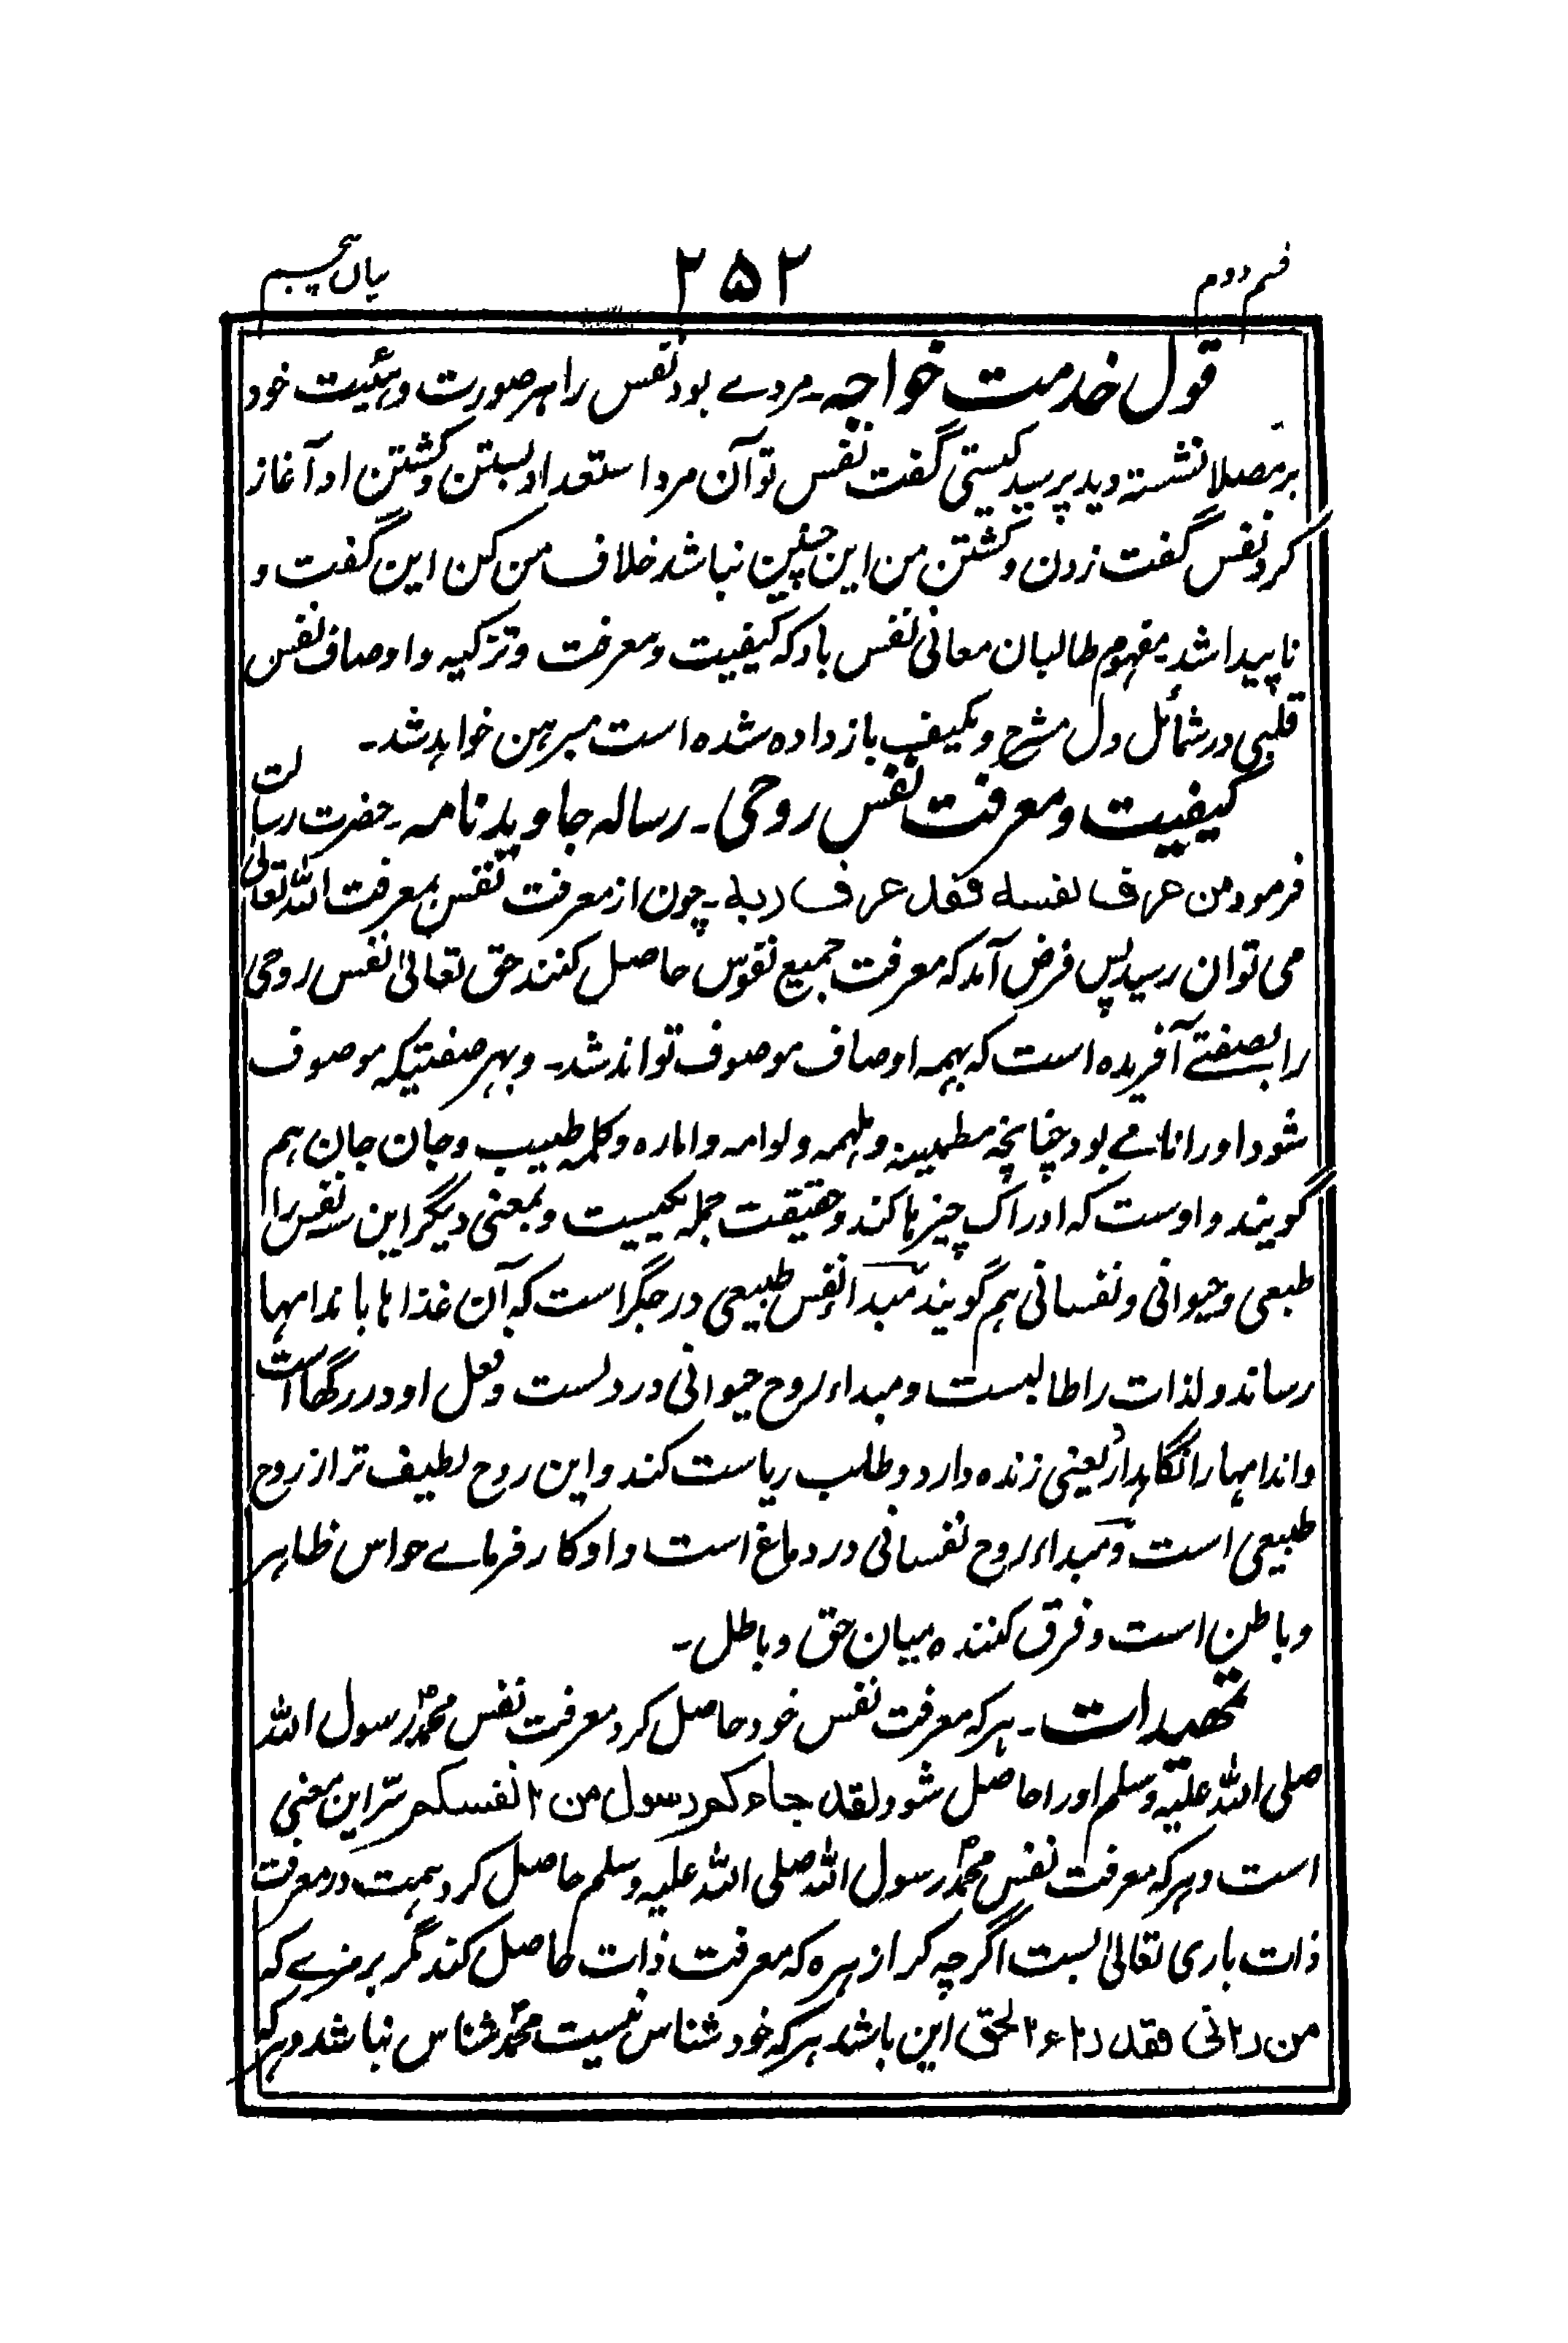 قسم دوم ۲۵۲ بیان پنجم
قول خدمت خواجه۔ مردے بود نفس را بر صورت و ہئیت خود
بر مصلا نشستہ دید پرسید کیستی گفت نفس تو آن مرد استعداد بستن و کشتن او آغاز
کرد نفس گفت زدن و کشتن من این چنین نباشد خلاف من کن این گفت و
ناپیدا شد۔ مفہوم طالبان معانی نفس باد کہ کیفیت و معرفت و تزکیہ و اوصاف نفس
قلبی در شمائل دل مشرح و مکیف باز داده شده است مبرہن خواہد شد۔
کیفیت و معرفت نفس روحی۔ رسالہ جاوید نامہ۔ حضرت رسالت
فرمود من عرف نفسه فقد عرف ربه۔ چون از معرفت نفس بمعرفت اللہ تعالیٰ
می توان رسید پس فرض آمد کہ معرفت جمیع نفوس حاصل کنند حق تعالیٰ نفس روحی
را بصفتے آفریده است کہ بہمہ اوصاف موصوف تواند شد۔ و بہر صفتیکہ موصوف
شود اورا نامے بود چنانچہ مطمینہ و ملہمہ و لوامہ و امارہ و کلمہ طیب و جان جان ہم
گویند و اوست کہ ادراک چیزہا کند و حقیقت جملہ یکیست و بمعنی دیگر این سہ نفس را
طبعی و حیوانی و نفسانی ہم گویند مبداء نفس طبیعی در جگر است کہ آن غذاہا باندامہا
رساند و لذات را طالبست و مبداء روح حیوانی در دلست و فعل او در رگہا است
و اندامہا را نگاہدارد یعنی زنده دارد و طلب ریاست کند و این روح لطیف تر از روح
طبیعی است و مبداء روح نفسانی در دماغ است و او کار فرماے حواس ظاہر
و باطن است و فرق کنندہ میان حق و باطل۔
تمہیدات۔ ہر کہ معرفت نفس خود حاصل کرد معرفت نفس محمدؐ رسول اللہ
صلی اللہ علیہ وسلم اورا حاصل شود لقد جاءکم رسول من انفسکم سرّ این معنی
است و ہر کہ معرفت نفس محمدؐ رسول اللہ صلی اللہ علیہ وسلم حاصل کرد ہمت در معرفت
ذات باری تعالیٰ بست اگرچہ کرا زہرہ کہ معرفت ذات حاصل کند مگر برمزے کہ
من رانی فقد راء الحق این باشد ہر کہ خود شناس نیست محمدؐ شناس نباشد و ہر کہ